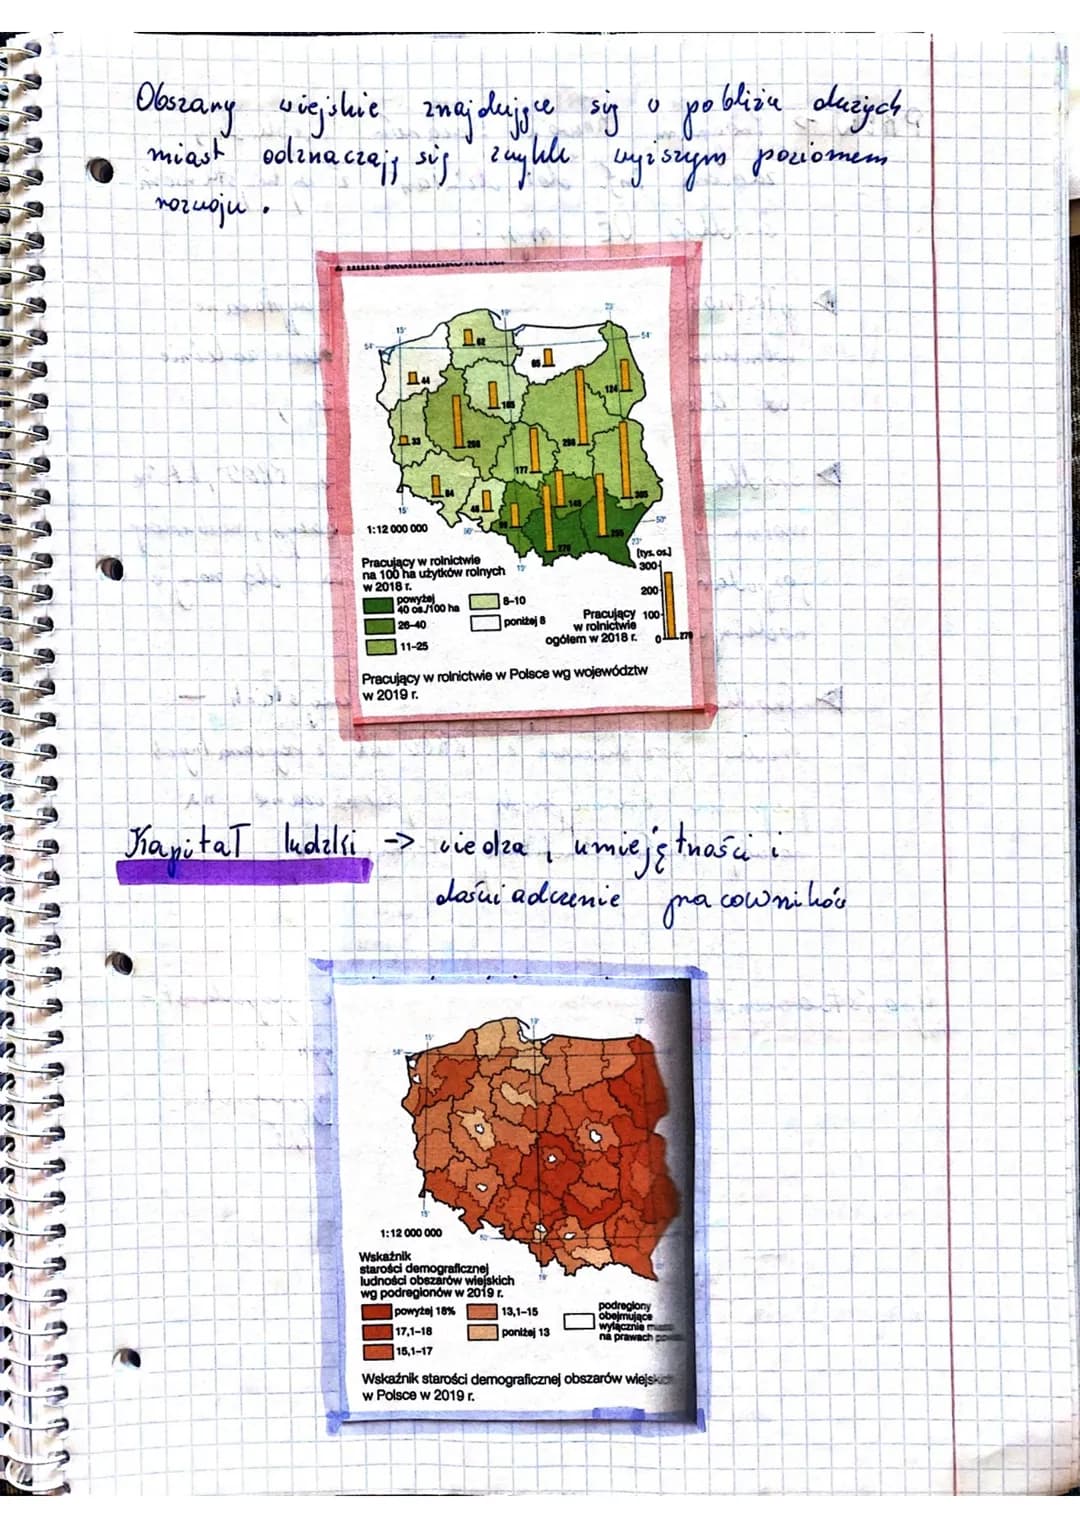 Obszary wiejskie znajdujące się w pobliżu dużych
miast odznaczają się zwykle wyższym poziomem
rozwoju.
15°
19°
23°
54°
54°
62
65
44
124
105
33
208
298
177
84
148
305
1:12 000 000
50°
50°
15°
19°
23°
Pracujący w rolnictwie
na 100 ha użytków rolnych
w 2018 r.
powyżej
40 os./100 ha
26–40
11–25
8–10
poniżej 8
[tys. os.]
300
200
100
0
Pracujący
w rolnictwie
ogółem w 2018 r.
279
Pracujący w rolnictwie w Polsce wg województw
w 2019 r.
Kapitał ludzki -> wiedza, umiejętności i
doświadczenie pracowników
15°
19°
23°
54°
15°
1:12 000 000
50°
19°
Wskaźnik
starości demograficznej
ludności obszarów wiejskich
wg podregionów w 2019 r.
powyżej 18%
17,1–18
15,1–17
13,1–15
poniżej 13
podregiony
obejmujące
wyłącznie
na prawach
Wskaźnik starości demograficznej obszarów
w Polsce w 2019 r.